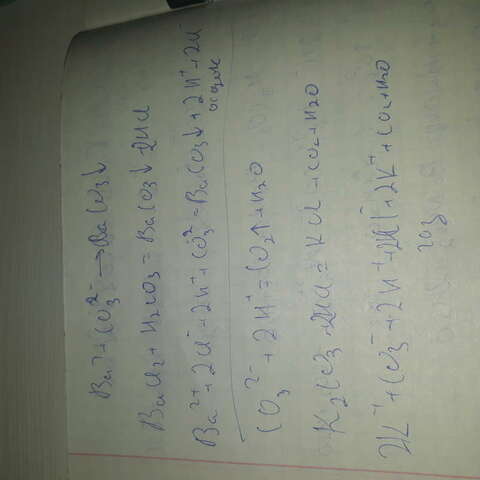 Ba²⁺ + CO₃²⁻ → BaCO₃↓
BaCl₂ + H₂CO₃ = BaCO₃↓ 2HCl
Ba²⁺ + 2Cl⁻ + 2H⁺ + CO₃²⁻ = BaCO₃↓ + 2H⁺ + 2Cl⁻
осадок
CO₃²⁻ + 2H⁺ = CO₂↑ + H₂O
K₂CO₃ + 2HCl = KCl + CO₂ + H₂O
2K⁺ + CO₃⁻ + 2H⁺ + 2Cl⁻ 2K⁺ + CO₂ + H₂O
газ